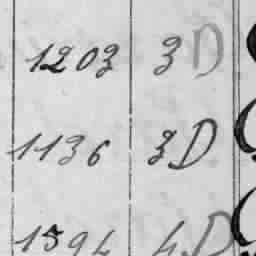 1203 3 D
1136 3 D
1594 4 D